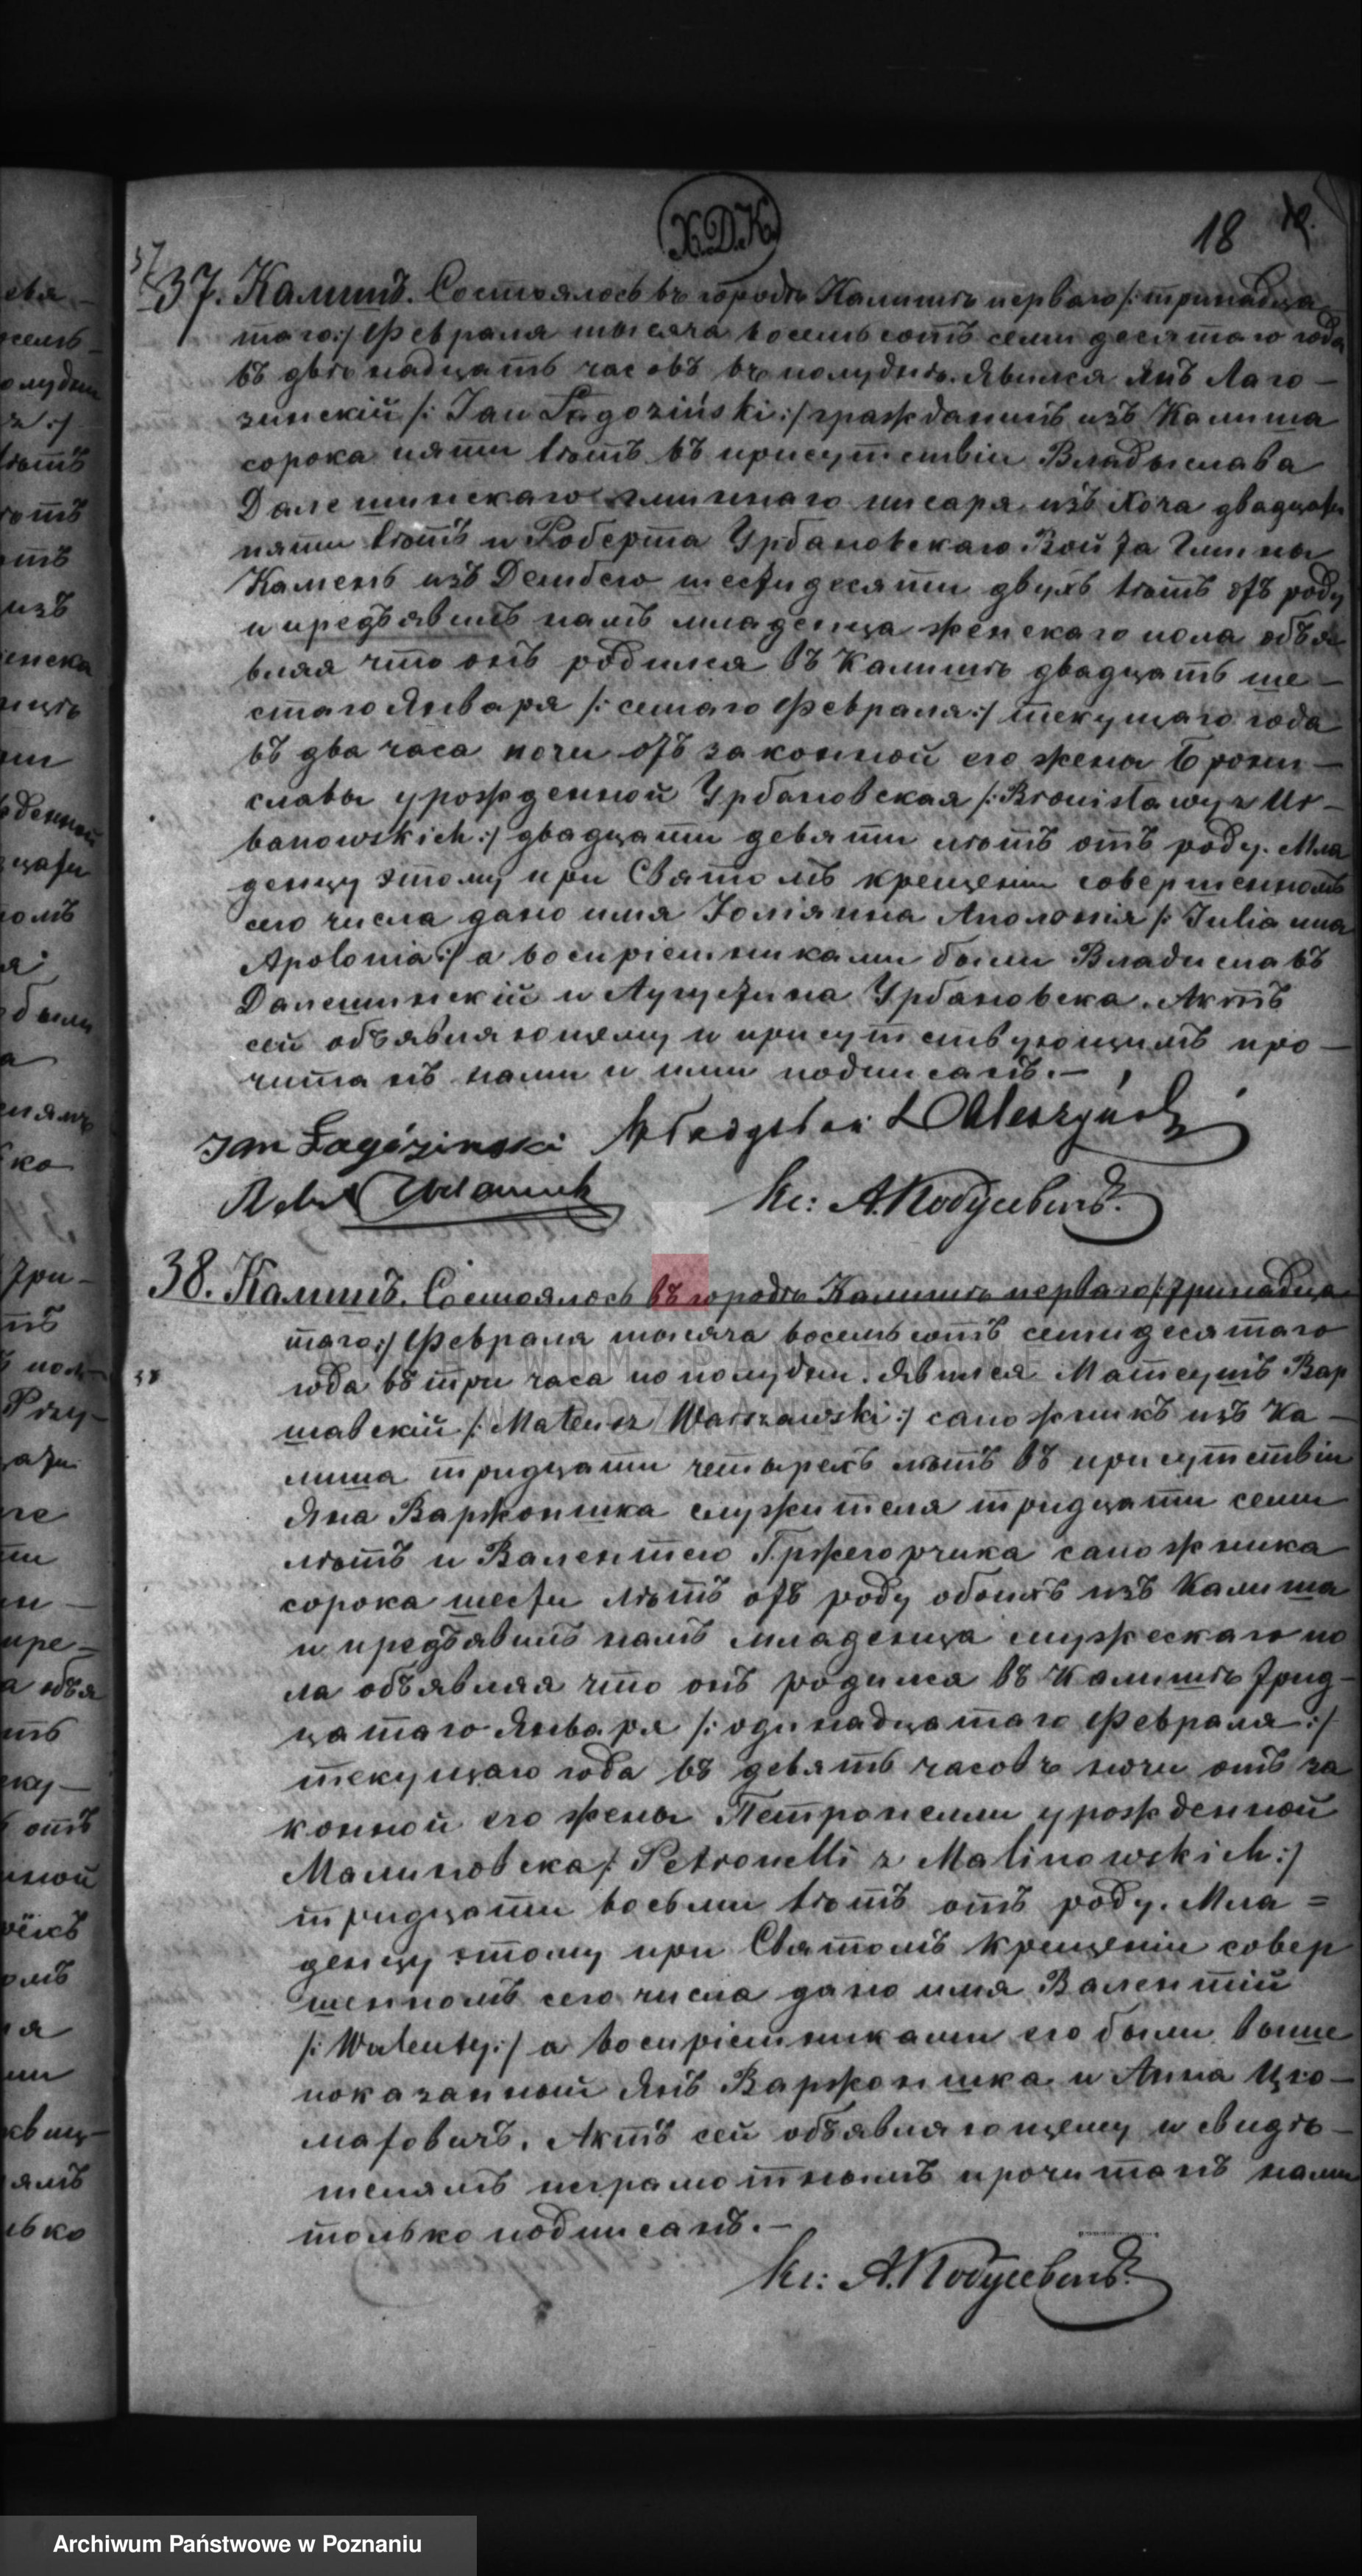 Х.Д.К.
18
37
37. Калишъ. Состоялось въ городѣ Калишѣ перваго /: тринадца
таго :/ Февраля тысяча восемьсотъ семидесятаго года
въ двѣнадцать часовъ въ полудню. Явился Янъ Лаго-
зинскій /: Jan Łagoziński :/ гражданинъ изъ Калиша
сорока пяти лѣтъ въ присутствіи Владыслава
Далешинскаго гминнаго писаря изъ двадцати
пяти лѣтъ и Роберта Урбановскаго Войта Гмины
Камень изъ шестидесяти двухъ лѣтъ отъ роду
и предъявилъ намъ младенца женскаго пола объя
вляя что онъ родился въ Калишѣ двадцать ше-
стаго Января /: семаго Февраля :/ текущаго года
въ два часа ночи отъ законной его жены Брони-
славы урожденной Урбановская /: Bronisławy z Ur-
banowskich :/ двадцати девяти лѣтъ отъ роду. Мла
денцу этому при Святомъ крещеніи совершенномъ
сего числа дано имя Юліянна Аполонія /: Julianna
Apolonia :/ а воспріемниками были Владиславъ
Далешинскій и Аугустина Урбановска. Актъ
сей объявляющему и присутствующимъ про-
читанъ нами и ими подписанъ.-
Jan Łagóziński Władysław Daleszyński
Ks: А. Кобусевичъ.
38. Калишъ. Состоялось въ городѣ Калишѣ перваго /: тринадца
таго :/ Февраля тысяча восемьсотъ семидесятаго
38
года въ три часа по полудни. Явился Матеушъ Вар
шавскій /: Mateusz Warszawski :/ сапожникъ изъ Ка-
лиша тридцати четырехъ лѣтъ въ присутствіи
Яна Варжоншка служителя тридцати семи
лѣтъ и Валентего Гржегорчика сапожника
сорока шести лѣтъ отъ роду обоихъ изъ Калиша
и предъявилъ намъ младенца мужескаго по
ла объявляя что онъ родился въ Калишѣ трид-
цатаго Января /: одинадцатаго Февраля :/
текущаго года въ девять часовъ ночи отъ за
конной его жены Петронелли урожденной
Малиновска /: Petronelli z Malinowskich :/
тридцати восьми лѣтъ отъ роду. Мла=
денцу этому при Святомъ Крещеніи совер
шенномъ сего числа дано имя Валентій
/: Walenty :/ а воспріемниками его были выше
показанный Янъ Варжоншка и Анна
Актъ сей объявляющему и свидѣ-
телямъ неграмотнымъ прочитанъ нами
только подписанъ.-
Ks: А. Кобусевичъ.
ARCHIWUM PAŃSTWOWE
W POZNANIU
Archiwum Państwowe w Poznaniu